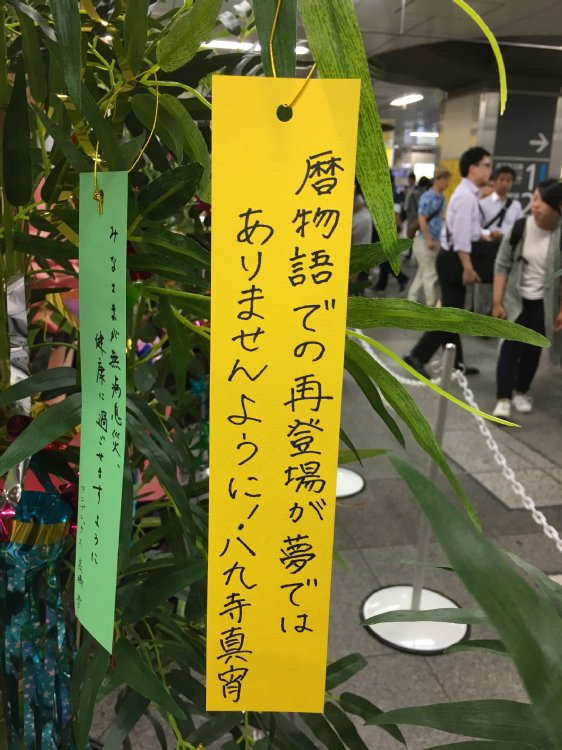 暦物語での再登場が夢では
ありませんように!八九寺真宵
みなさまが無病息災、
健康に過ごせますように
1